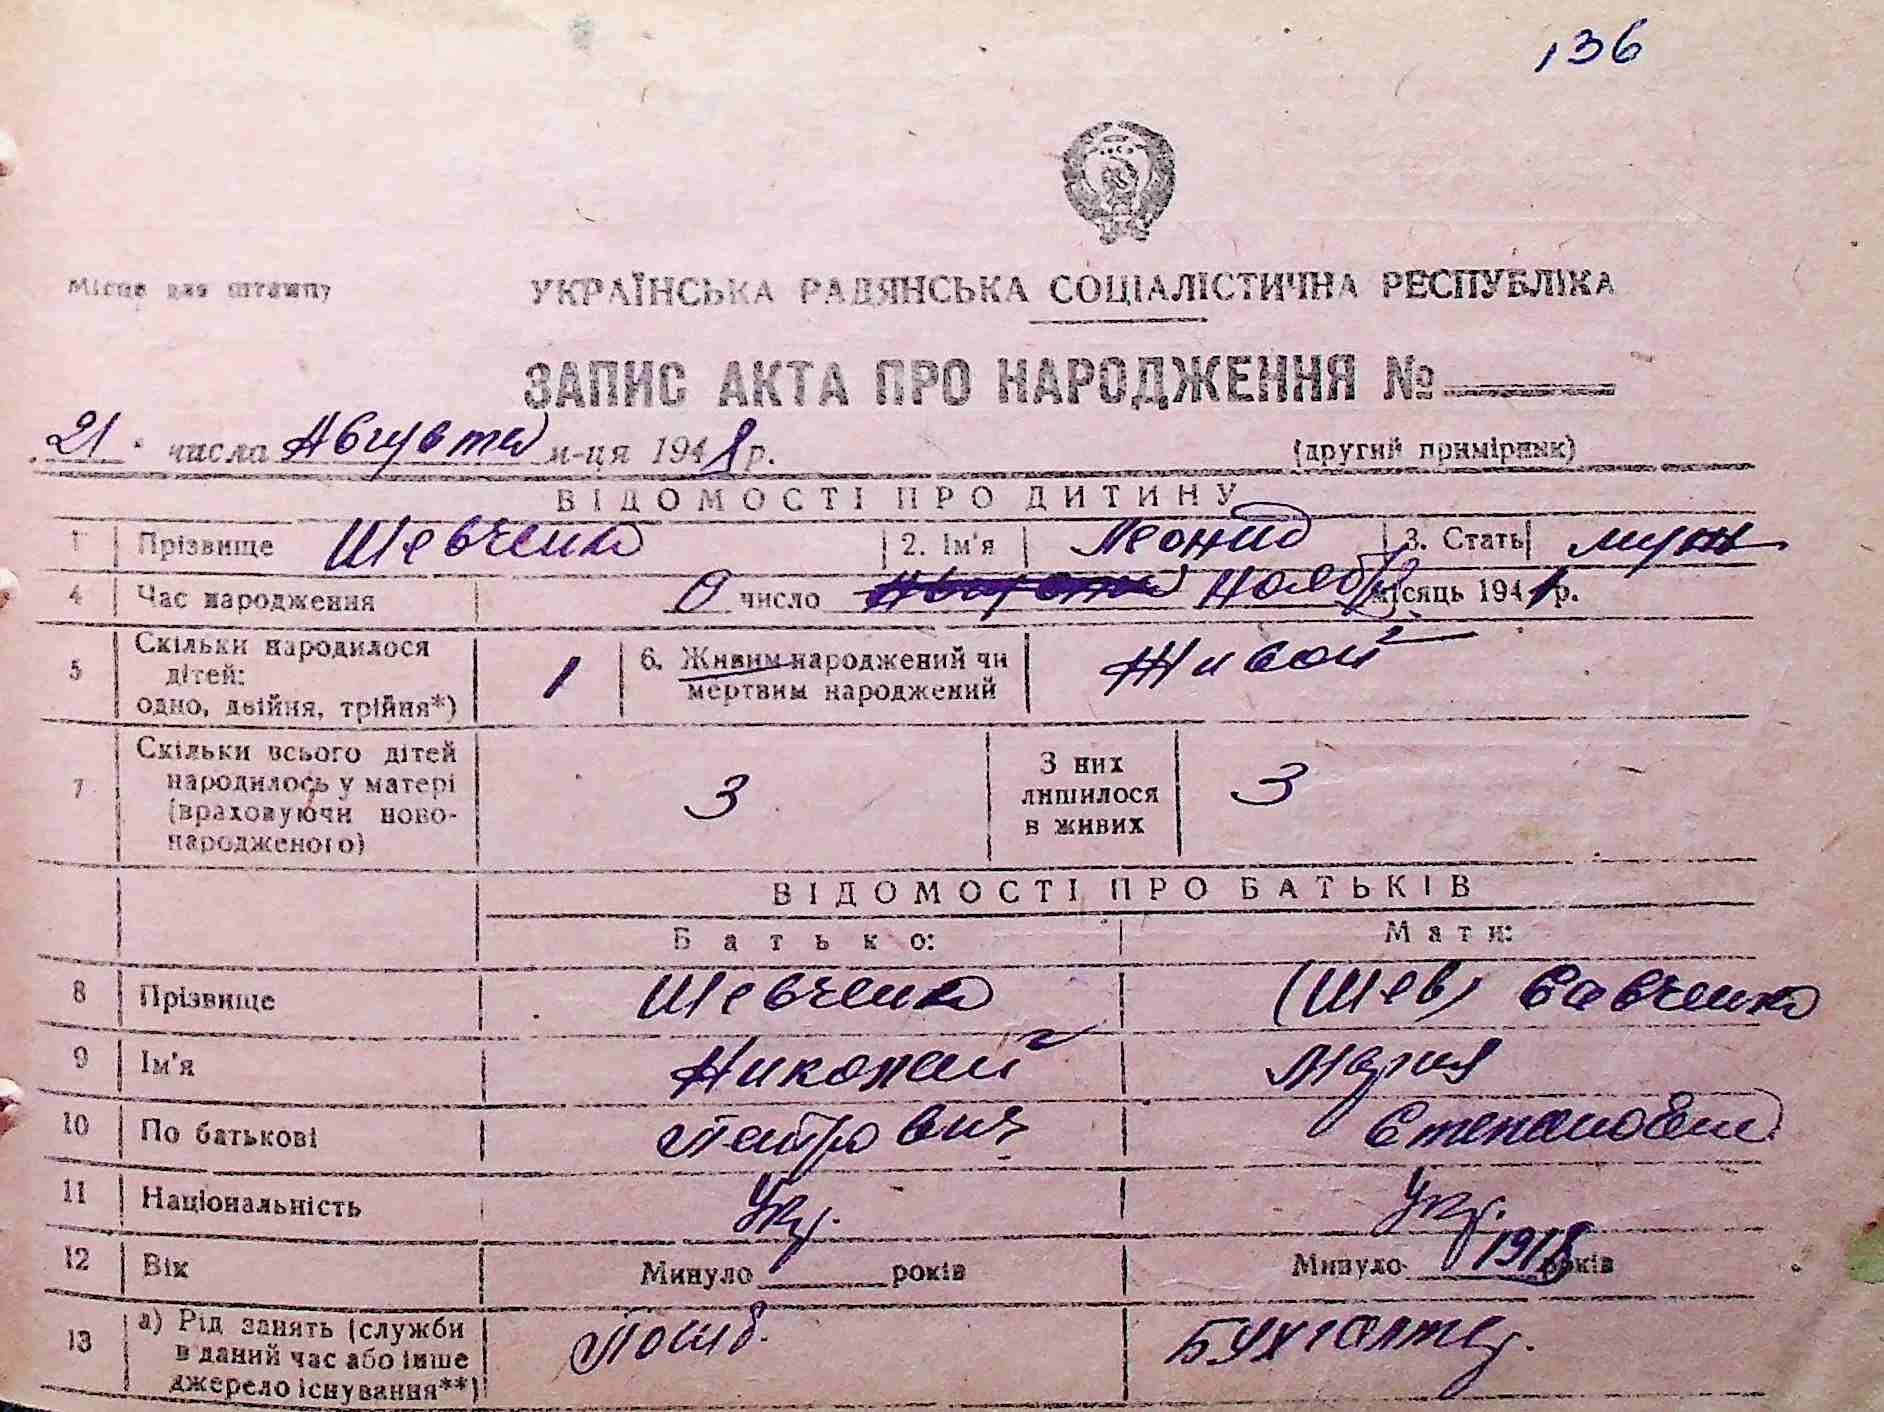 136
Місце для штампу
УКРАЇНСЬКА РАДЯНСЬКА СОЦІАЛІСТИЧНА РЕСПУБЛІКА
ЗАПИС АКТА ПРО НАРОДЖЕННЯ №
21 числа Августа м-ця 1948 р.
(другий примірник)
ВІДОМОСТІ ПРО ДИТИНУ
1 Прізвище Шевченко 2. Ім'я Леонид 3. Стать муж
4 Час народження число Августа Ноябр місяць 1941 р.
5 Скільки народилося дітей: одно, двійня, трійня*) 1 6. Живим народжений чи мертвим народжений Живой
7 Скільки всього дітей народилось у матері (враховуючи новонародженого) 3 З них лишилося в живих 3
ВІДОМОСТІ ПРО БАТЬКІВ
Батько: Мати:
8 Прізвище Шевченко (Шев) Савченко
9 Ім'я Николай Мария
10 По батькові Петрович Степановна
11 Національність Укр. Укр.
12 Вік Минуло років Минуло 1918 років
13 а) Рід занять (служби в даний час або інше джерело існування**) Погиб. Бухгалтер.